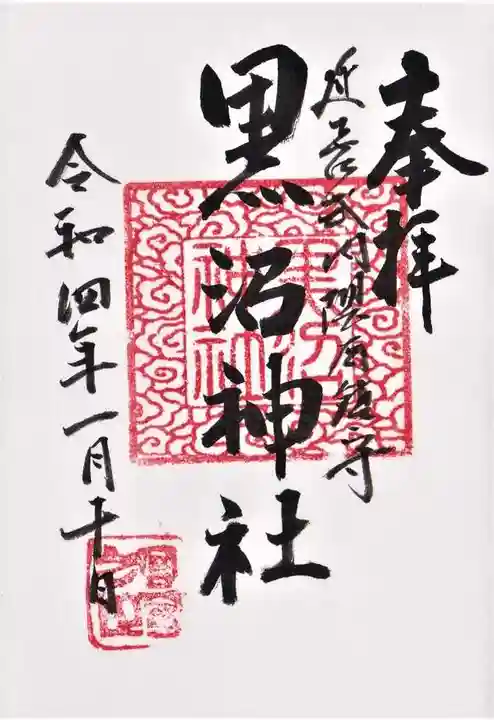 奉拝
延喜式内隈府鎮守
黒沼神社
令和四年一月十日
黒沼神社